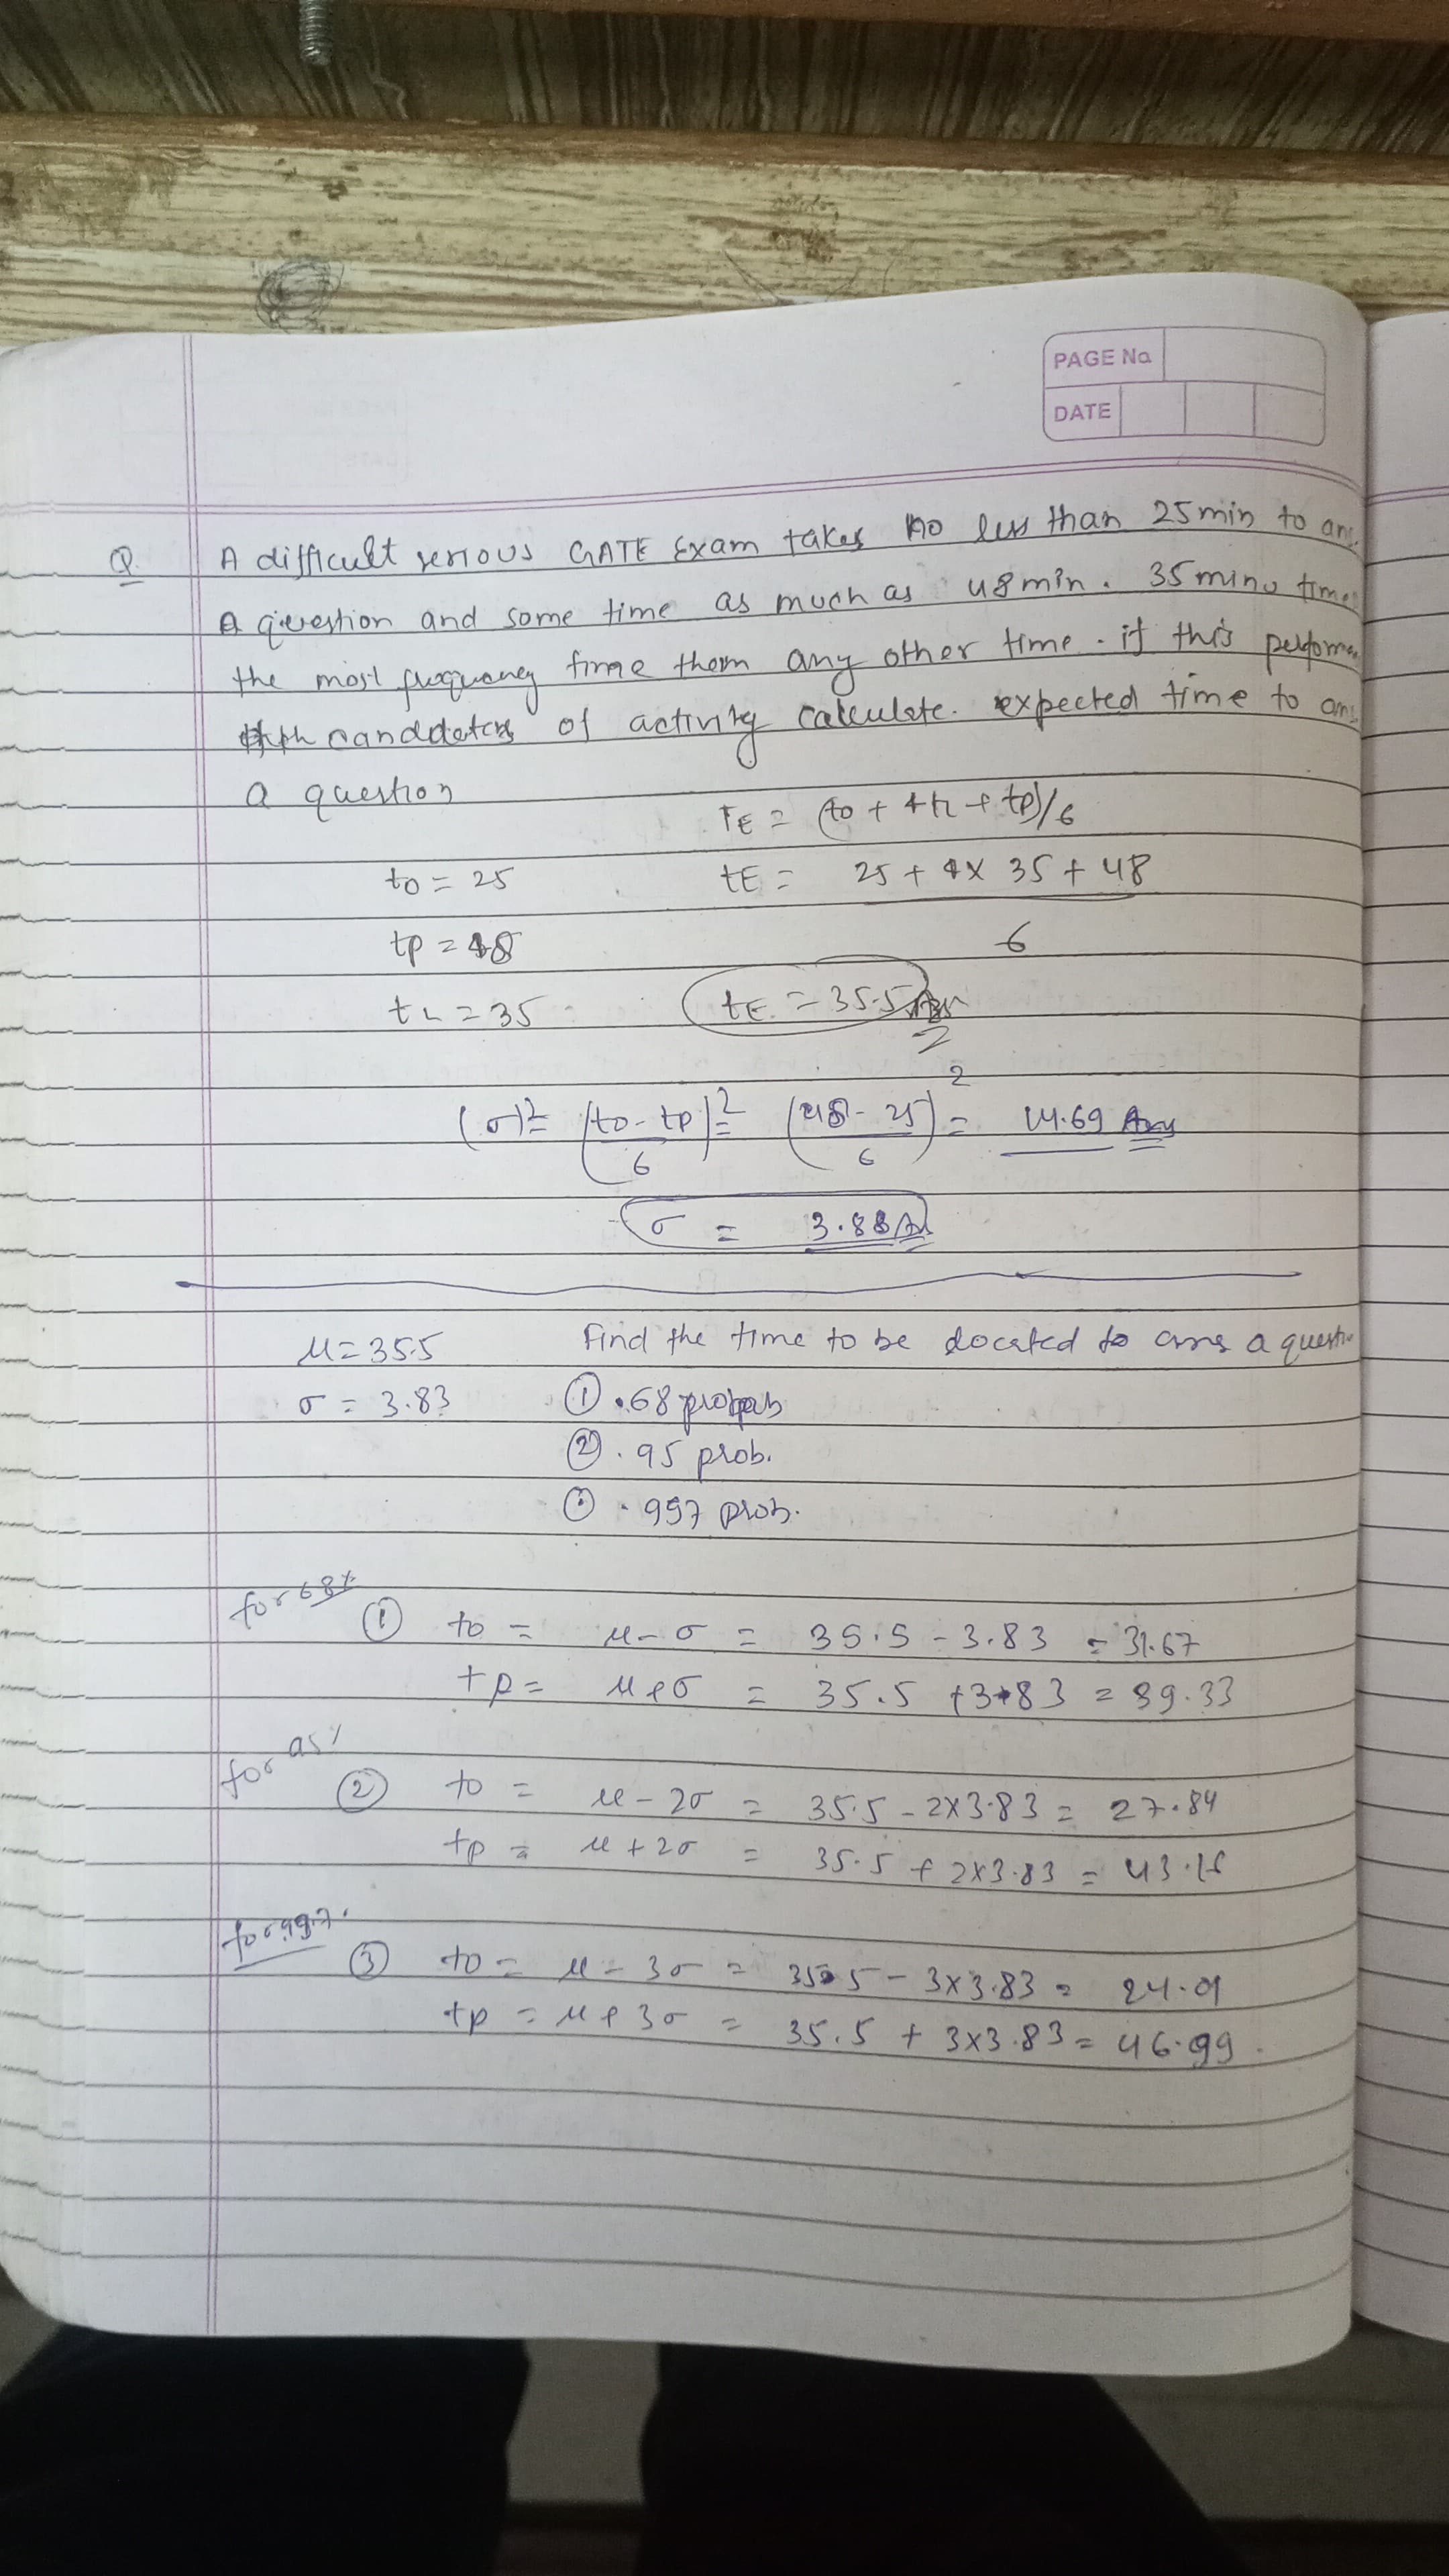 PAGE No
DATE
Q. A difficult serious GATE Exam takes no less than 25min to ans
A question and some time as much as 48min. 35min time
the most frequency time them any other time. if this
of activity calculate. expected time to ans
a question
TE = (to + 4tL + tp)/6
to = 25 tE = 25 + 4x 35 + 48
tp = 48 6
tL = 35 tE = 35.5 Ans
(σ)² = (to - tp)² = (48 - 25)² = 14.69 Ans
6 6
σ = 3.83 Ans
μ = 35.5 Find the time to be located to ans a questi
σ = 3.83 ① .68 probab
② .95 prob.
③ .997 prob.
for 68%
① to = μ - σ = 35.5 - 3.83 = 31.67
tp = μ + σ = 35.5 + 3.83 = 39.33
for 95%
② to = μ - 2σ = 35.5 - 2x3.83 = 27.84
tp = μ + 2σ = 35.5 + 2x3.83 = 43.16
for 99.7.
③ to = μ - 3σ = 35.5 - 3x3.83 = 24.01
tp = μ + 3σ = 35.5 + 3x3.83 = 46.99